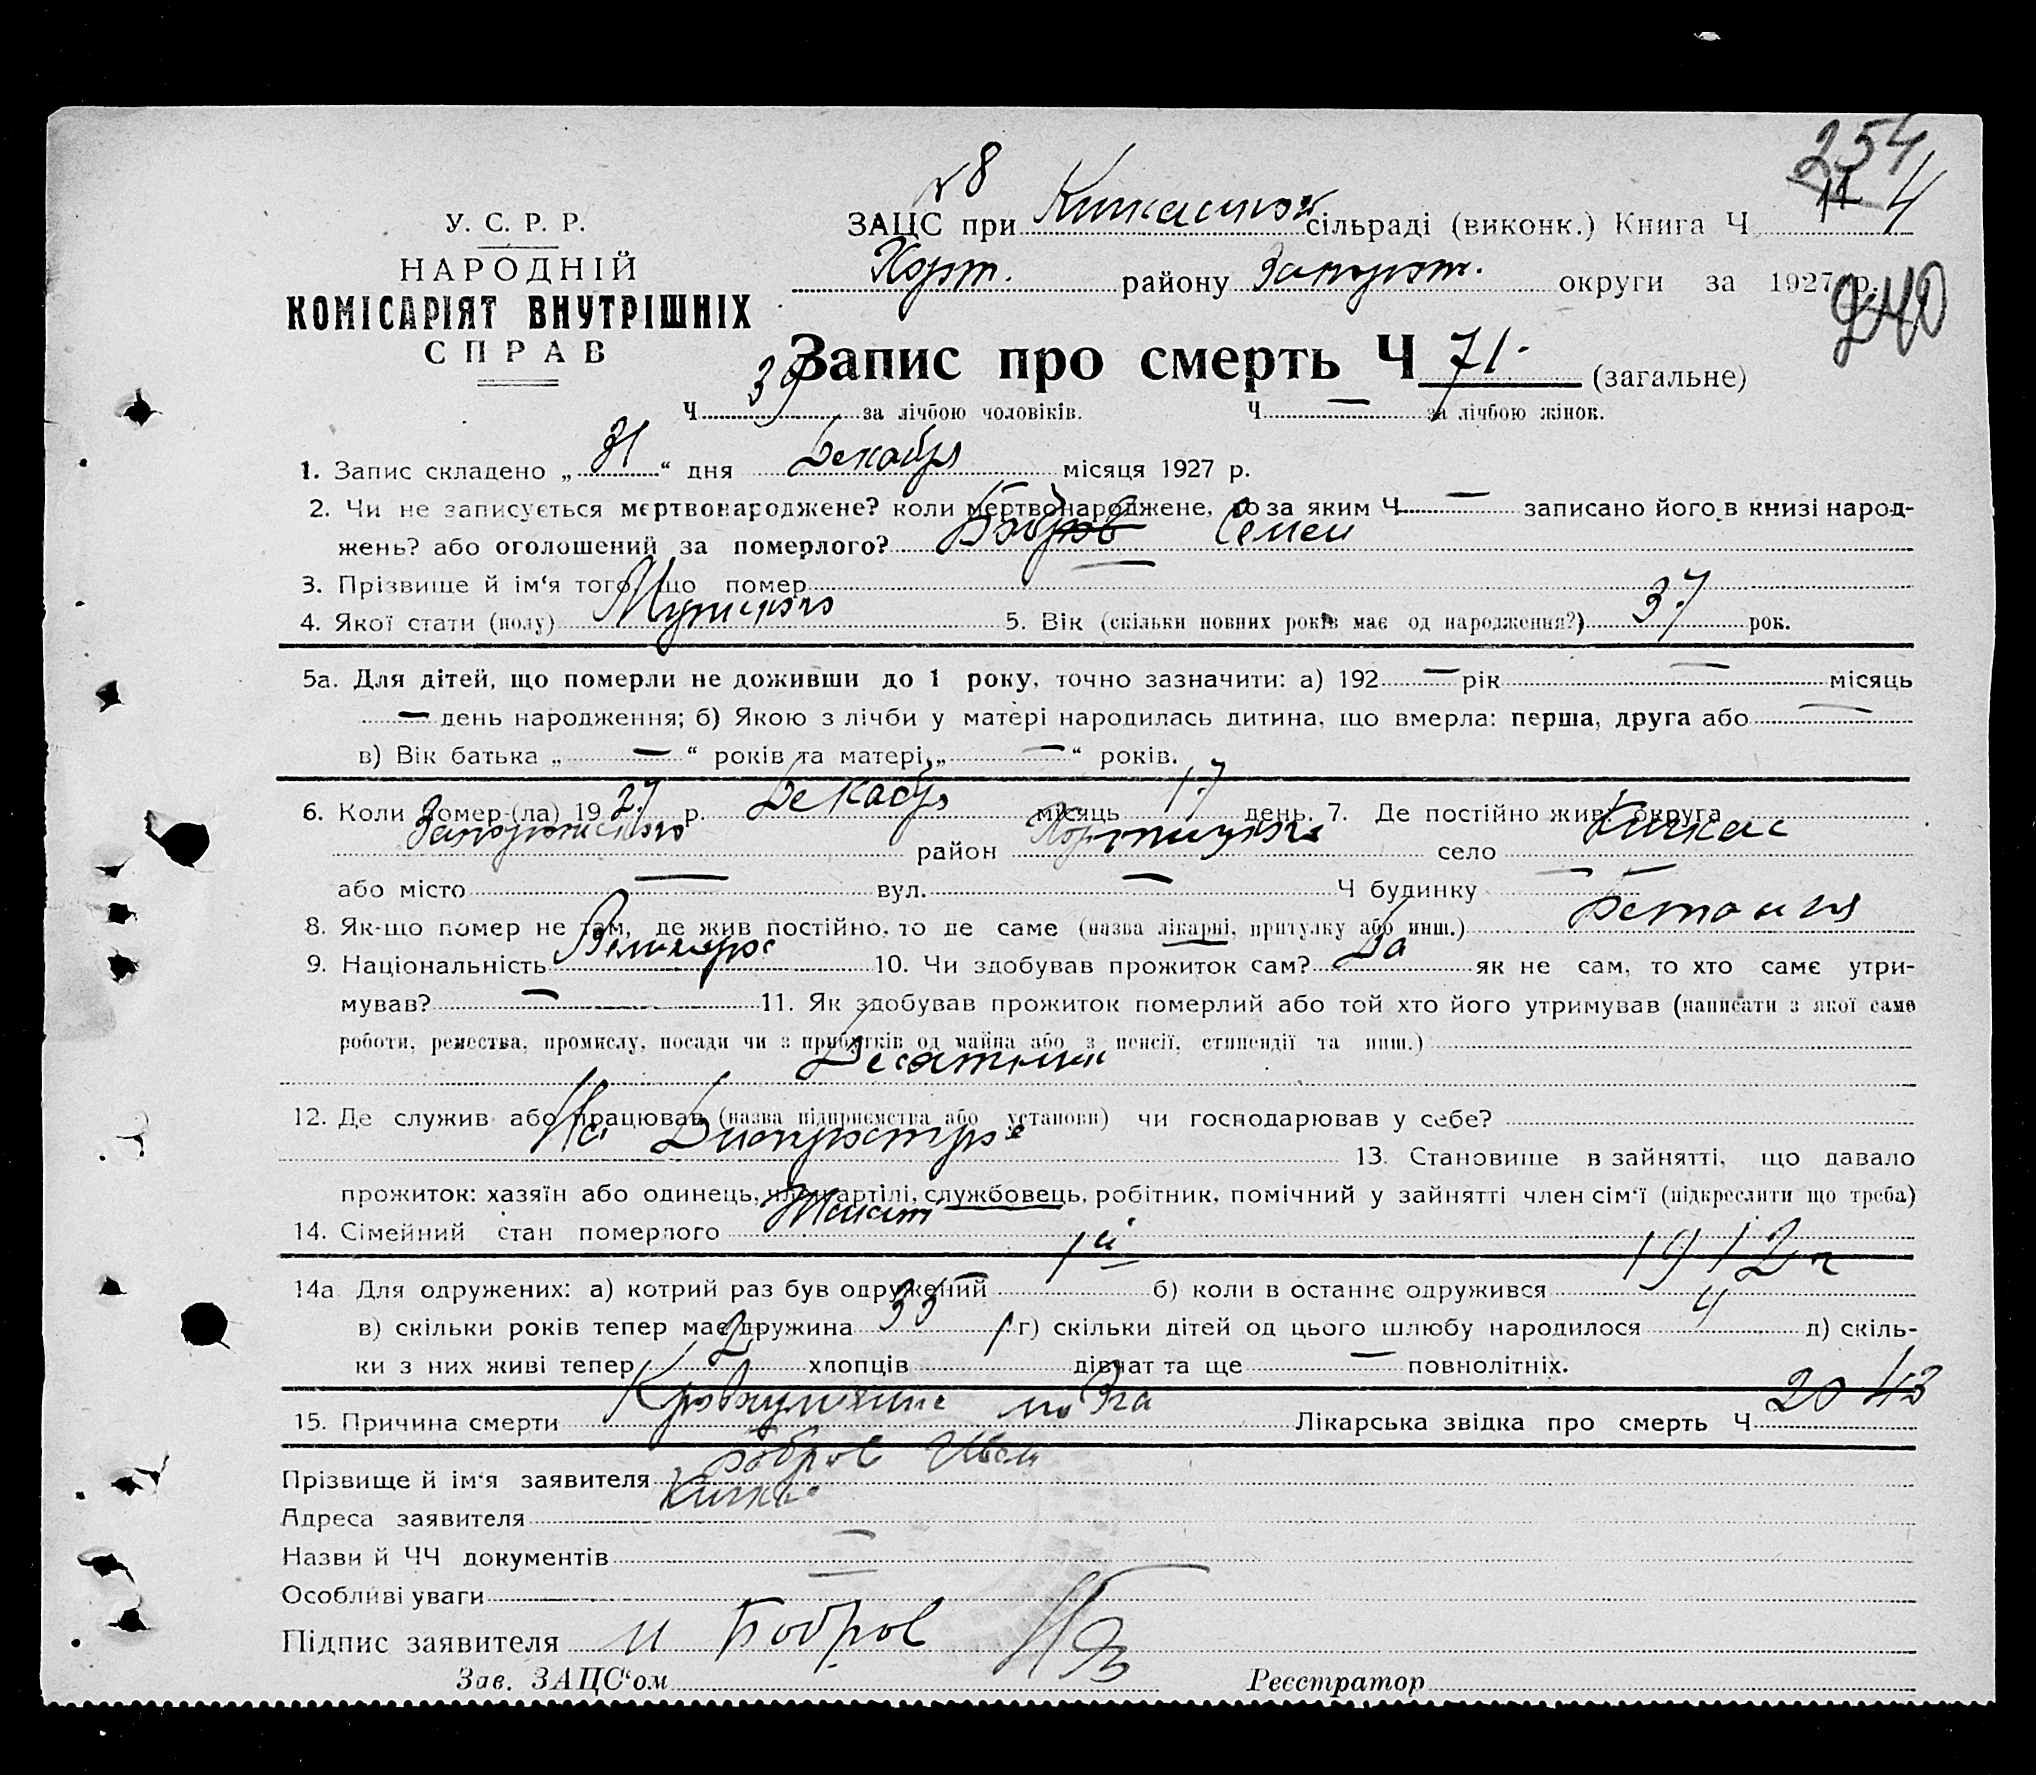 254
№ 8
11 4
У. С. Р. Р.
ЗАЦС при Кичкаской сільраді (виконк.) Книга Ч
НАРОДНІЙ
Хорт. району Запорож. округи за 1927 р.
240
КОМІСАРІЯТ ВНУТРІШНІХ
СПРАВ
Запис про смерть Ч 71. (загальне)
Ч 39 за лічбою чоловіків. Ч — за лічбою жінок.
1. Запис складено „ 31 “ дня Декабря місяця 1927 р.
2. Чи не записується мертвонароджене? коли мертвонароджене, то за яким Ч — записано його в книзі народ-
жень? або оголошений за померлого? Бобров Семен
3. Прізвище й ім‘я того, що помер —
4. Якої стати (полу) Мужского 5. Вік (скільки повних років має од народження?) 37 рок.
5а. Для дітей, що померли не доживши до 1 року, точно зазначити: а) 192 — рік — місяць
— день народження; б) Якою з лічби у матері народилась дитина, що вмерла: перша, друга або —
в) Вік батька „ — “ років та матері „ — “ років.
6. Коли помер-(ла) 1927 р. Декабр місяць 17 день. 7. Де постійно жив: округа
Запорожского район Хортицького село Кичкас
або місто — вул. — Ч будинку —
8. Як-що помер не там, де жив постійно, то де саме (назва лікарні, притулку або инш.) Бетания
9. Національність 10. Чи здобував прожиток сам? Да як не сам, то хто саме утри-
мував? — 11. Як здобував прожиток померлий або той хто його утримував (написати з якої саме
роботи, ремества, промислу, посади чи з прибутків од майна або з пенсії, стипендії та инш.)
Десятник
12. Де служив або працював (назва підприємства або установи) чи господарював у себе?
На Днепрострое 13. Становище в зайнятті, що давало
прожиток: хазяїн або одинець, член артілі, службовець, робітник, помічний у зайнятті член сім‘ї (підкреслити що треба)
14. Сімейний стан померлого Женат
14а Для одружених: а) котрий раз був одружений 1й б) коли в останнє одружився 1912 г
в) скільки років тепер має дружина 35 г) скільки дітей од цього шлюбу народилося 4 д) скіль-
ки з них живі тепер 2 хлопців 1 дівчат та ще — повнолітніх.
15. Причина смерти Лікарська звідка про смерть Ч 2043
Прізвище й ім‘я заявителя Бобров Иван
Адреса заявителя Кичкас
Назви й ЧЧ документів —
Особливі уваги —
Підпис заявителя И Бобров
Зав. ЗАЦС‘ом Реєстратор